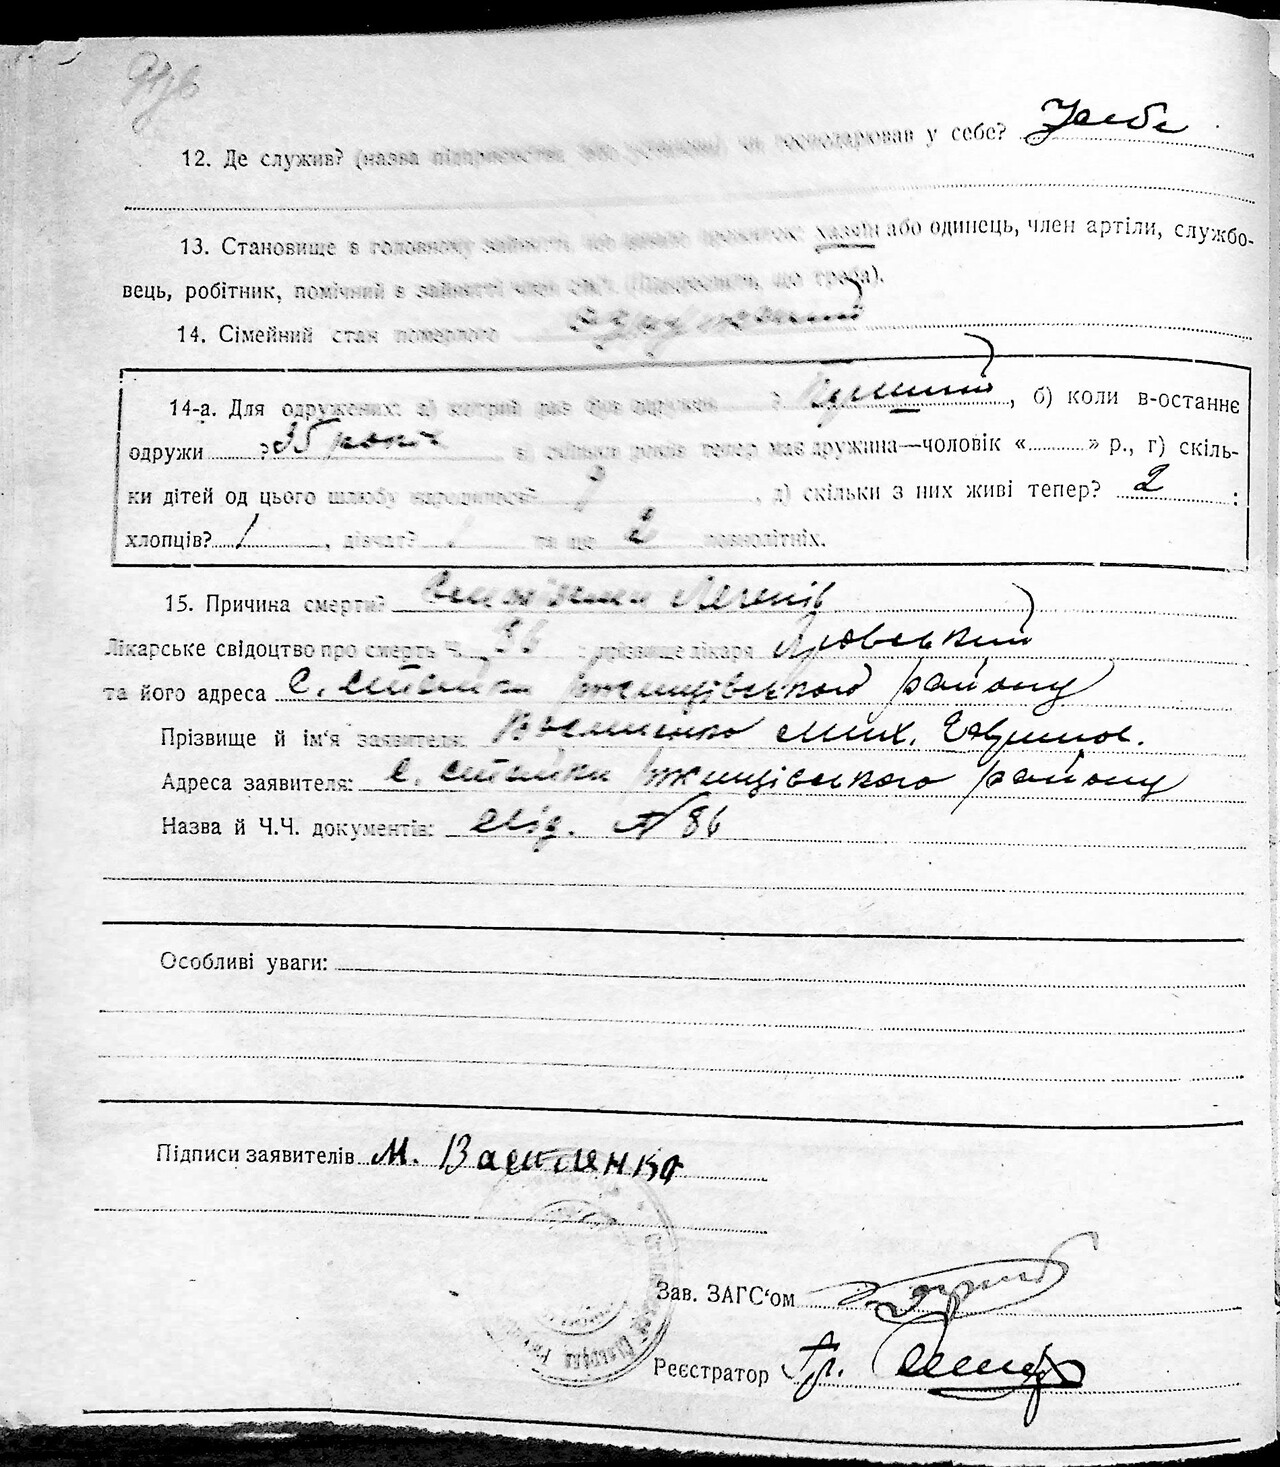 12. Де служив? (назва підприємства або установи) чи господарював у себе? У себе
13. Становище в головному занятті, що давало прожиток: хазяїн або одинець, член артіли, службо-
вець, робітник, помічний в занятті член сім'ї. (Підкреслити, що треба).
14. Сімейний стан померлого одружений
14-а. Для одружених: а) котрий раз був одружен ? Перший, б) коли в-останнє
одружи ? 35 років в) скільки років тепер має дружина—чоловік «» р., г) скіль-
ки дітей од цього шлюбу народилося? , д) скільки з них живі тепер? 2 :
хлопців? 1, дівчат? та ще 2 повнолітніх.
15. Причина смерти? легенів
Лікарське свідоцтво про смерть Ч. 86 : прізвище лікаря
та його адреса с. Стайки Ржищівського району
Прізвище й ім'я заявителя: Василенко Мих.
Адреса заявителя: с. Стайки Ржищівського району
Назва й Ч.Ч. документів: Свід. № 86
Особливі уваги:
Підписи заявителів М. Василенко
Зав. ЗАГС'ом
Реєстратор Гр.